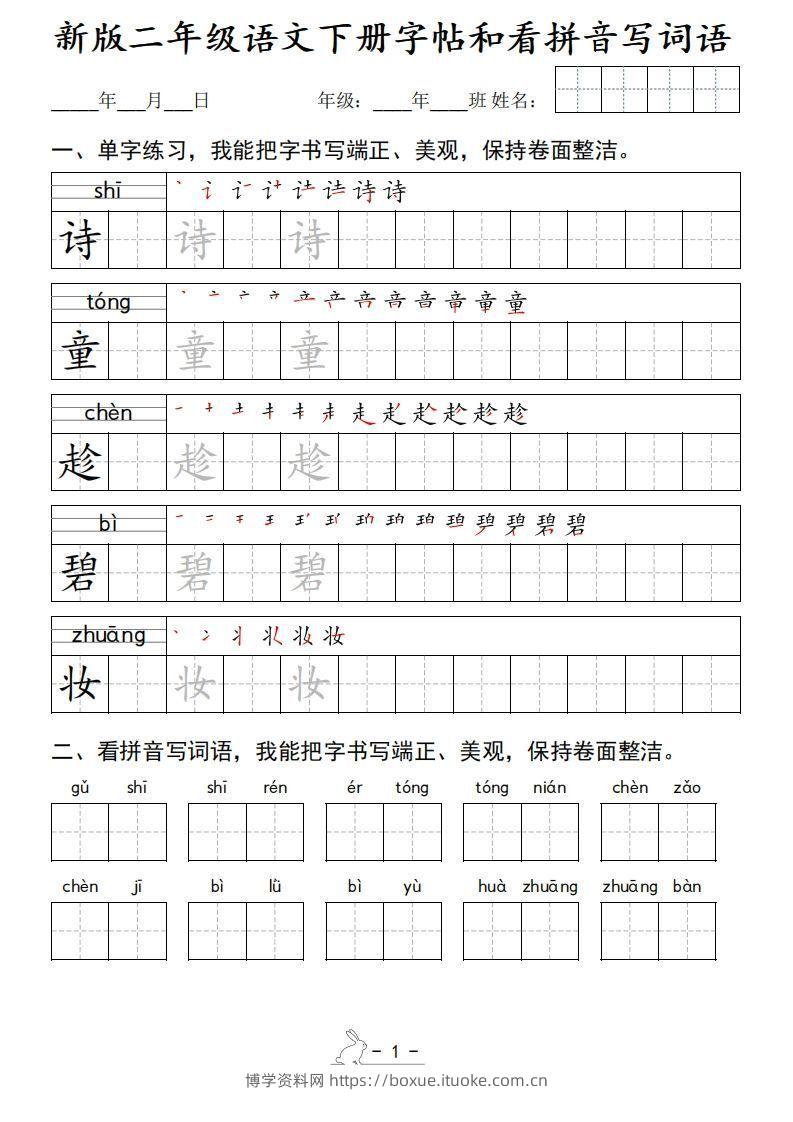 新版二年级语文下册字帖和看拼音写词语
_____年___月___日 年级：____年____班 姓名：
一、单字练习，我能把字书写端正、美观，保持卷面整洁。
shī
诗 诗 诗
tóng
童 童 童
chèn
趁 趁 趁
bì
碧 碧 碧
zhuāng
妆 妆 妆
二、看拼音写词语，我能把字书写端正、美观，保持卷面整洁。
gǔ shī shī rén ér tóng tóng nián chèn zǎo
chèn jī bì lǜ bì yù huà zhuāng zhuāng bàn
- 1 -
博学资料网 https://boxue.ituoke.com.cn